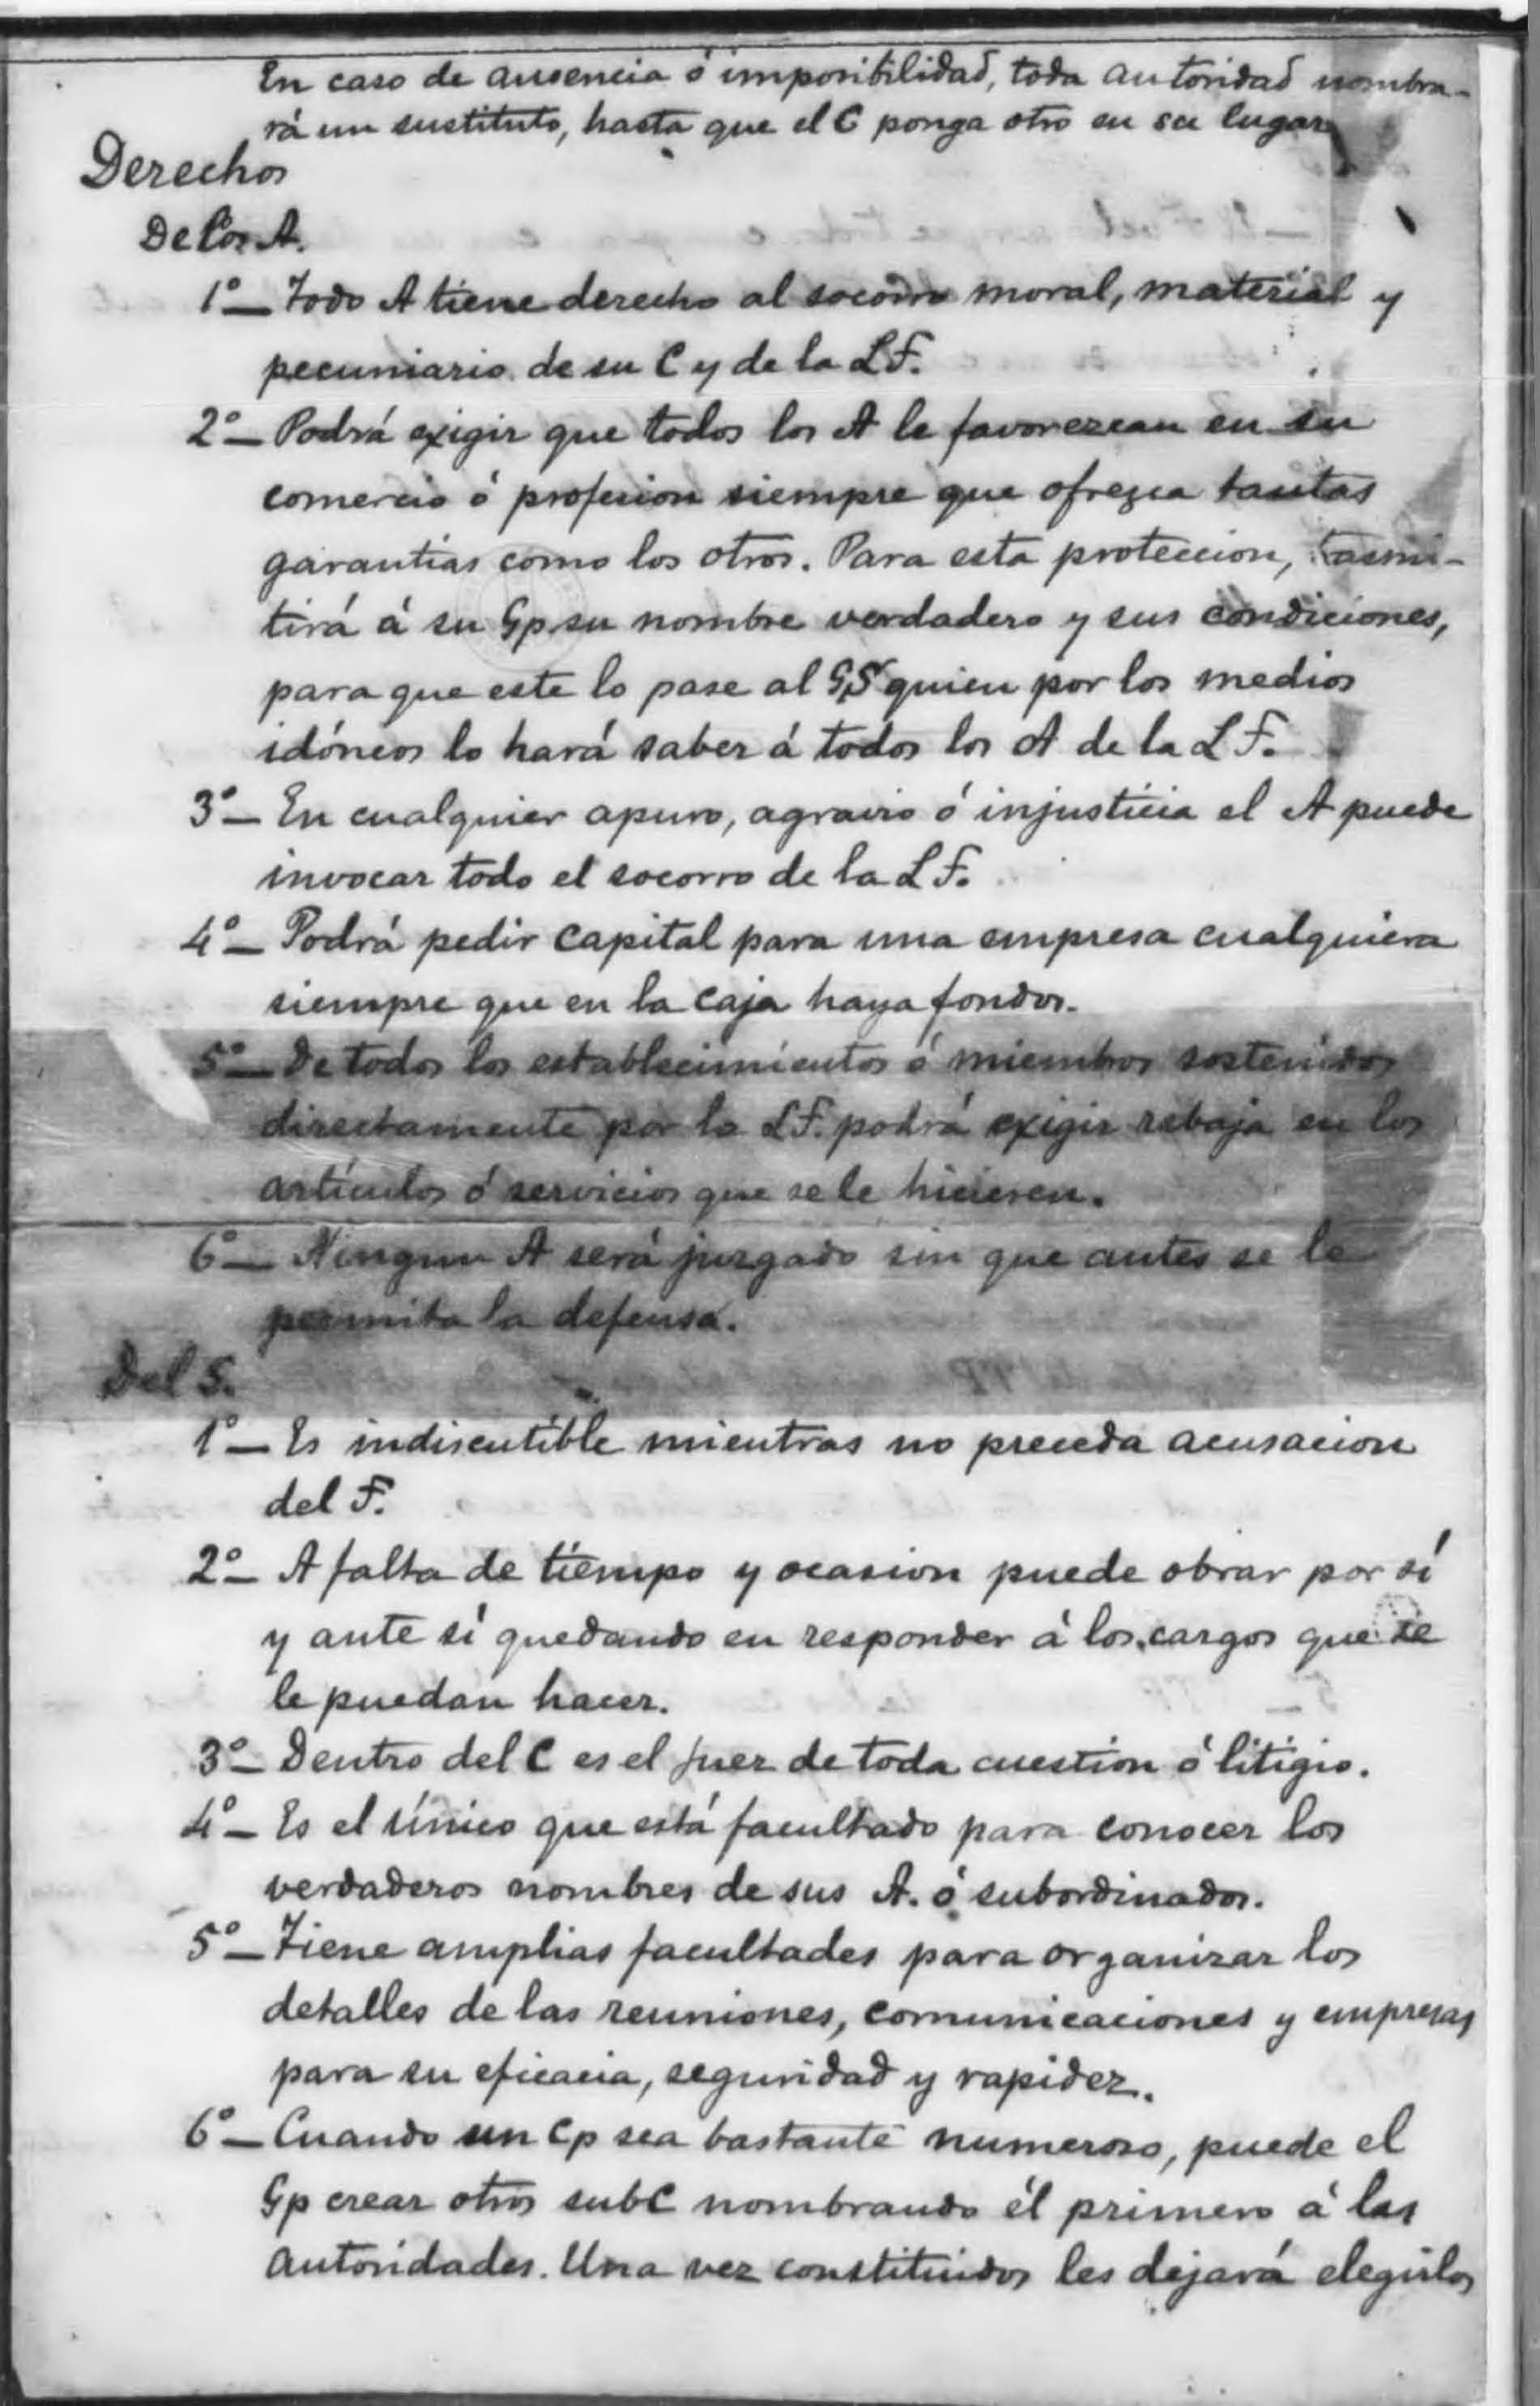 En caso de ausencia ó imposibilidad, toda autoridad nombra-
rá un sustituto, hasta que el C ponga otro en su lugar
Derechos
De los A.
1º— Todo A tiene derecho al socorro moral, material y
pecuniario de su C y de la L F.
2º— Podrá exigir que todos los A le favorezcan en su
comercio ó profesion siempre que ofrezca tantas
garantías como los otros. Para esta proteccion, trasmi-
tirá á su Gp su nombre verdadero y sus condiciones,
para que este lo pase al GS quien por los medios
idóneos lo hará saber á todos los A de la L F.
3º— En cualquier apuro, agravio ó injusticia el A puede
invocar todo el socorro de la L F.
4º— Podrá pedir capital para una empresa cualquiera
siempre que en la caja haya fondos.
5º— De todos los establecimientos ó miembros sostenidos
directamente por la L F. podrá exigir rebaja en los
artículos ó servicios que se le hicieren.
6º— Ningun A será juzgado sin que antes se le
permita la defensa.
Del S.
1º— Es indiscutible mientras no preceda acusacion
del F.
2º— A falta de tiempo y ocasion puede obrar por sí
y ante sí quedando en responder á los cargos que se
le puedan hacer.
3º— Dentro del C es el juez de toda cuestion ó litigio.
4º— Es el único que está facultado para conocer los
verdaderos nombres de sus A. ó subordinados.
5º— Tiene amplias facultades para organizar los
detalles de las reuniones, comunicaciones y empresas
para su eficacia, seguridad y rapidez.
6º— Cuando un Cp sea bastante numeroso, puede el
Gp crear otros subC nombrando él primero á las
autoridades. Una vez constituidos les dejará elegirlos